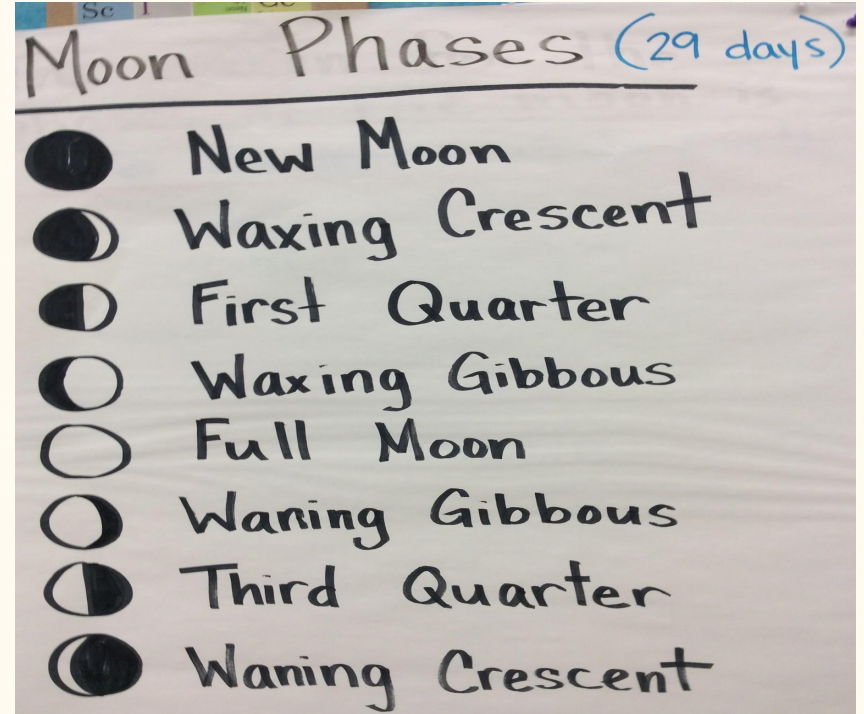 Sc
Moon Phases (29 days)
New Moon
Waxing Crescent
First Quarter
Waxing Gibbous
Full Moon
Waning Gibbous
Third Quarter
Waning Crescent